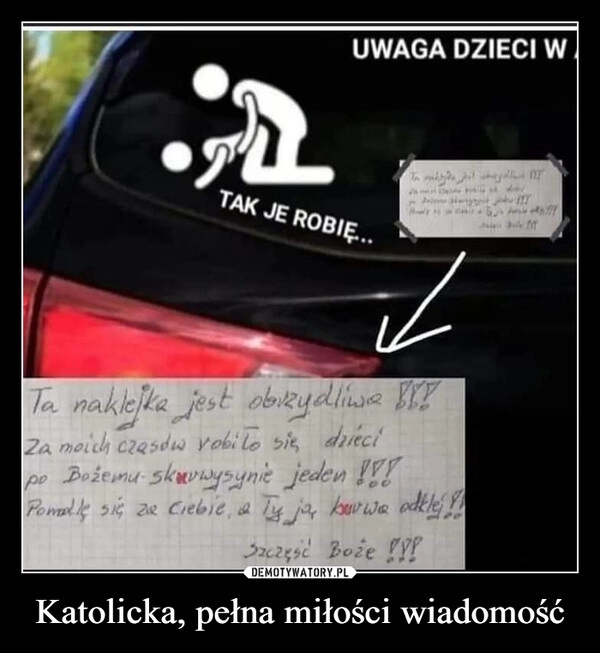 UWAGA DZIECI W
TAK JE ROBIĘ...
Ta naklejka jest obrzydliwa !!!
Za moich czasów robiło się dzieci
po Bożemu skurwysynie jeden !!!
Pomodlę się za Ciebie, a Ty ją kurwa odklej !!
Szczęść Boże !!!
DEMOTYWATORY.PL
Katolicka, pełna miłości wiadomość